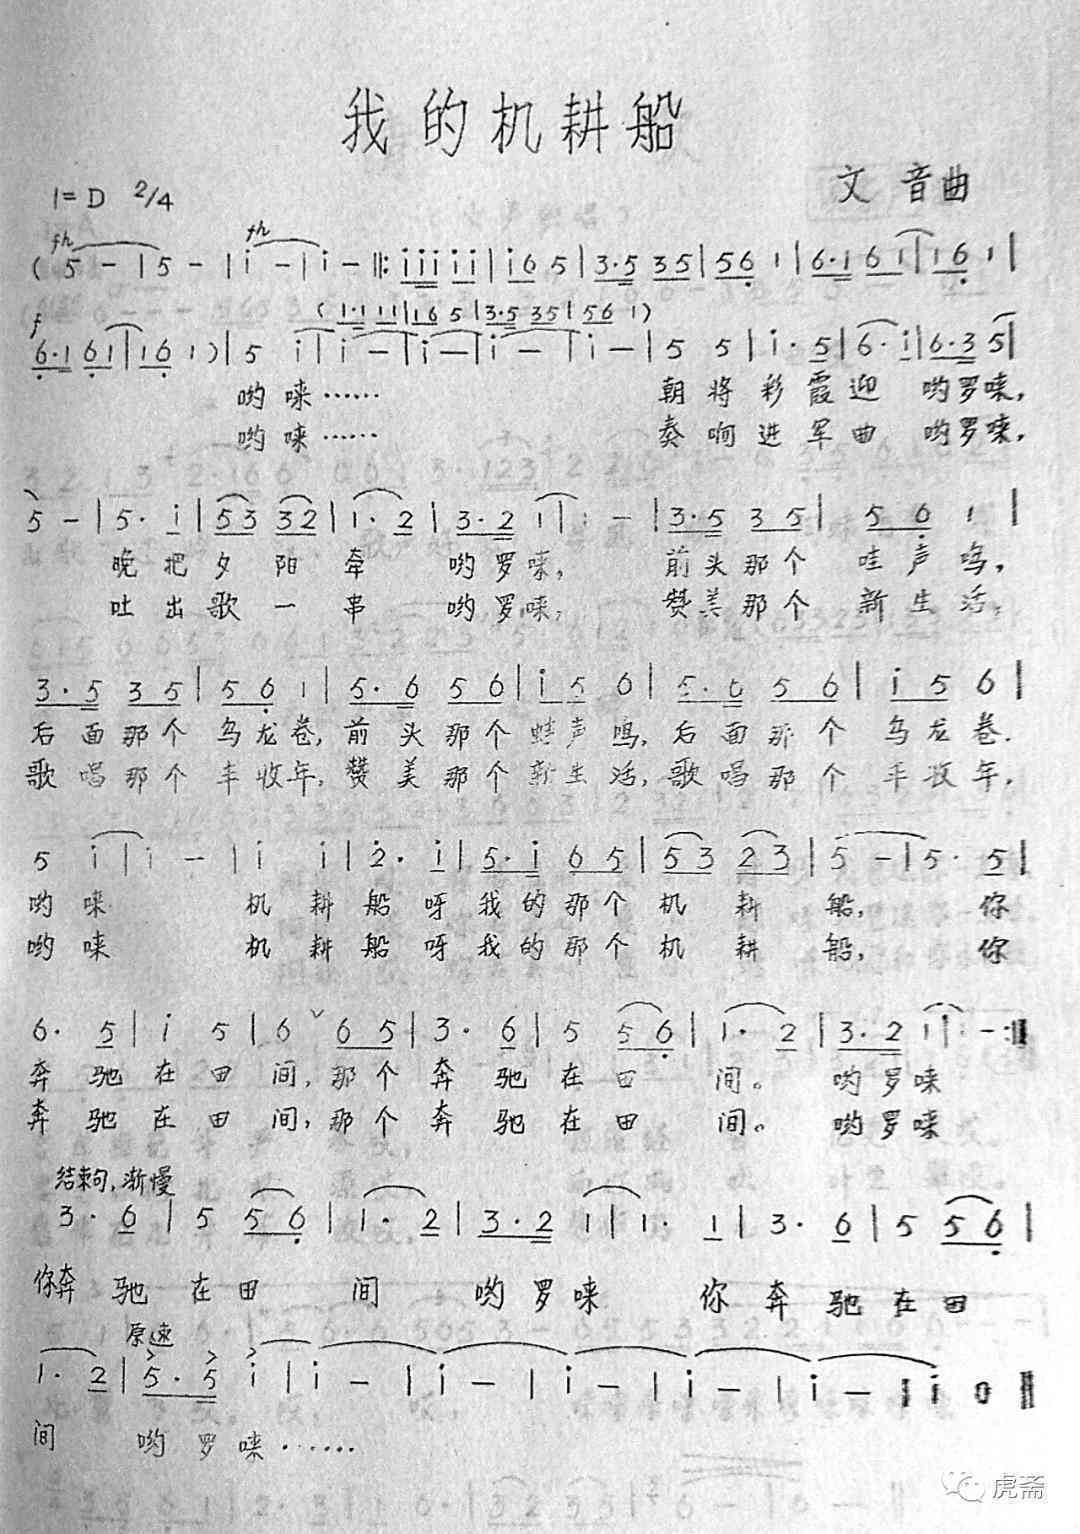 我的机耕船
1=D 2/4
文音曲
( 5 - | 5 - | i - | i - ‖: i i i i i | i 6 5 | 3·5 3 5 | 5 6 1 | 6·1 6 1 | 1 6 1 |
( 1·1 1 1 | 1 6 5 | 3·5 3 5 | 5 6 1 )
f
6·1 6 1 | 1 6 1 ) | 5 i | i - | i - | i - | i - | 5 5 | i· 5 | 6· i | 6·3 5 |
哟唻…… 朝将彩霞迎 哟罗唻,
哟唻…… 奏响进军曲 哟罗唻,
5 - | 5· i | 5 3 3 2 | 1· 2 | 3·2 1 | 1 - | 3·5 3 5 | 5 6 1 |
晚把夕阳牵 哟罗唻, 前头那个哇声鸣,
吐出歌一串 哟罗唻, 赞美那个新生活,
3·5 3 5 | 5 6 1 | 5·6 5 6 | i 5 6 | 5·6 5 6 | i 5 6 |
后面那个乌龙卷,前头那个蛙声鸣,后面那个乌龙卷.
歌唱那个丰收年,赞美那个新生活,歌唱那个丰收年.
5 i | i - | i i | 2· i | 5·i 6 5 | 5 3 2 3 | 5 - | 5· 5 |
哟唻 机耕船呀我的那个机耕船, 你
哟唻 机耕船呀我的那个机耕船, 你
6· 5 | i 5 | 6 ˇ 6 5 | 3· 6 | 5 5 6 | 1· 2 | 3·2 1 | 1 - :‖
奔驰在田间,那个奔驰在田间。哟罗唻
奔驰在田间,那个奔驰在田间。哟罗唻
结束句,渐慢
3· 6 | 5 5 6 | 1· 2 | 3·2 1 | 1· 1 | 3· 6 | 5 5 6 |
你奔驰在田间 哟罗唻 你奔驰在田
原速
1· 2 | 5·5 i | i - | i - | i - | i - | i - | i 0 ‖
间 哟罗唻……
虎斋